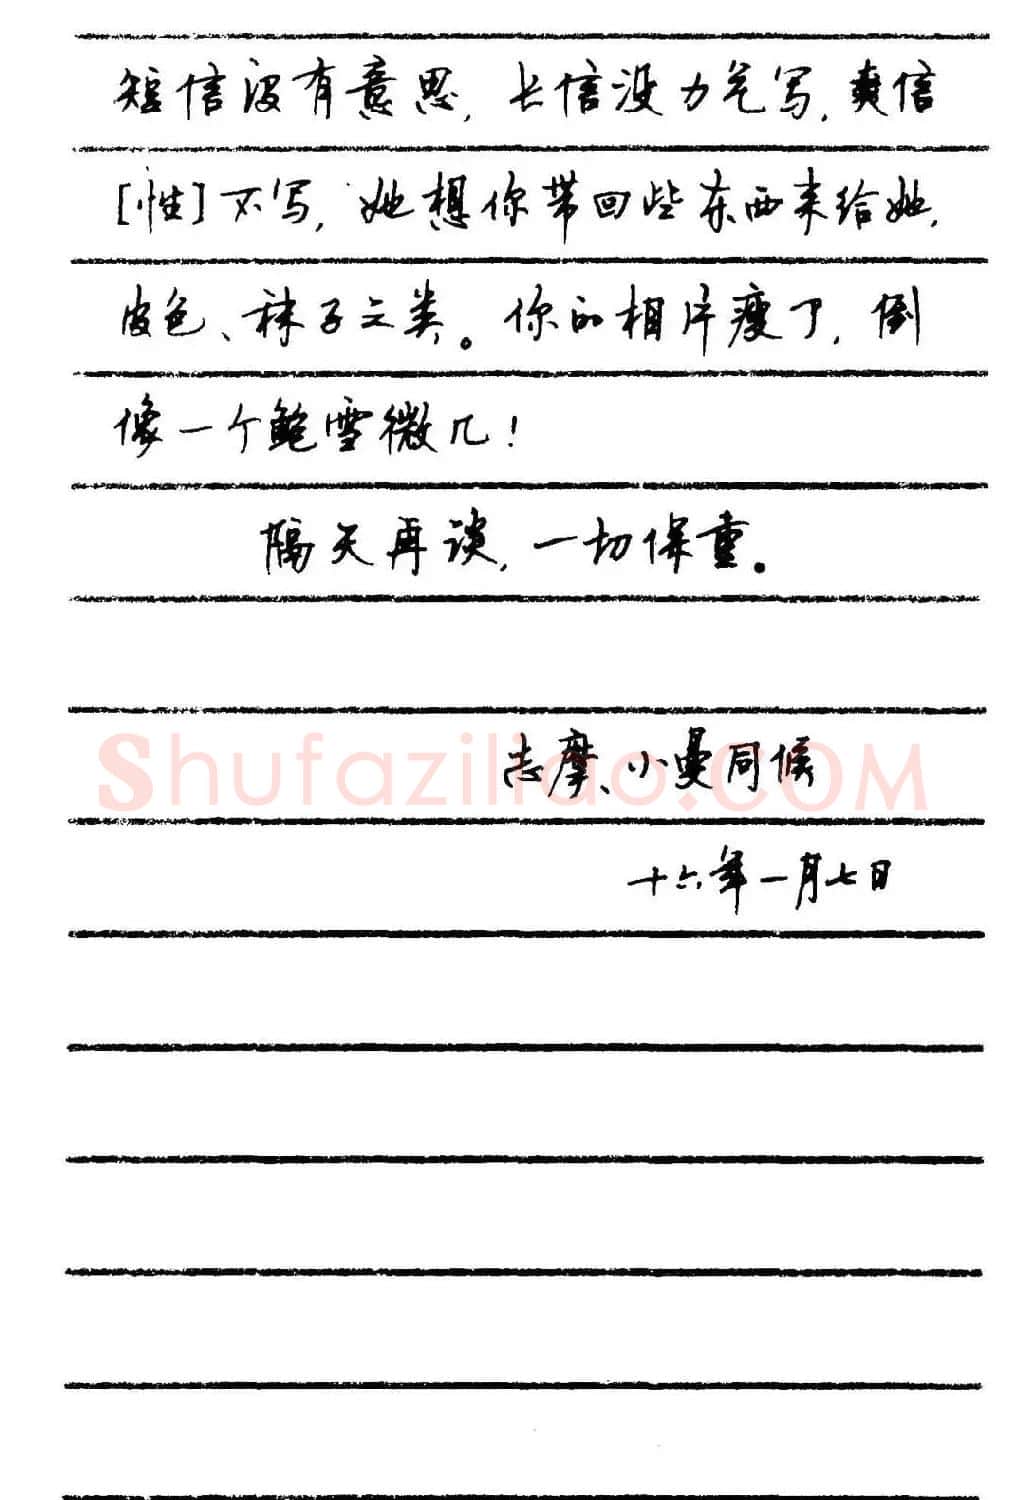 短信没有意思，长信没力气写，爽信
[性]不写，她想你带回些东西来给她，
皮色、袜子之类。你的相片瘦了，倒
像一个鲍雪微几！
隔天再谈，一切保重。
志摩、小曼同候
十六年一月七日
Shufaziliao.COM